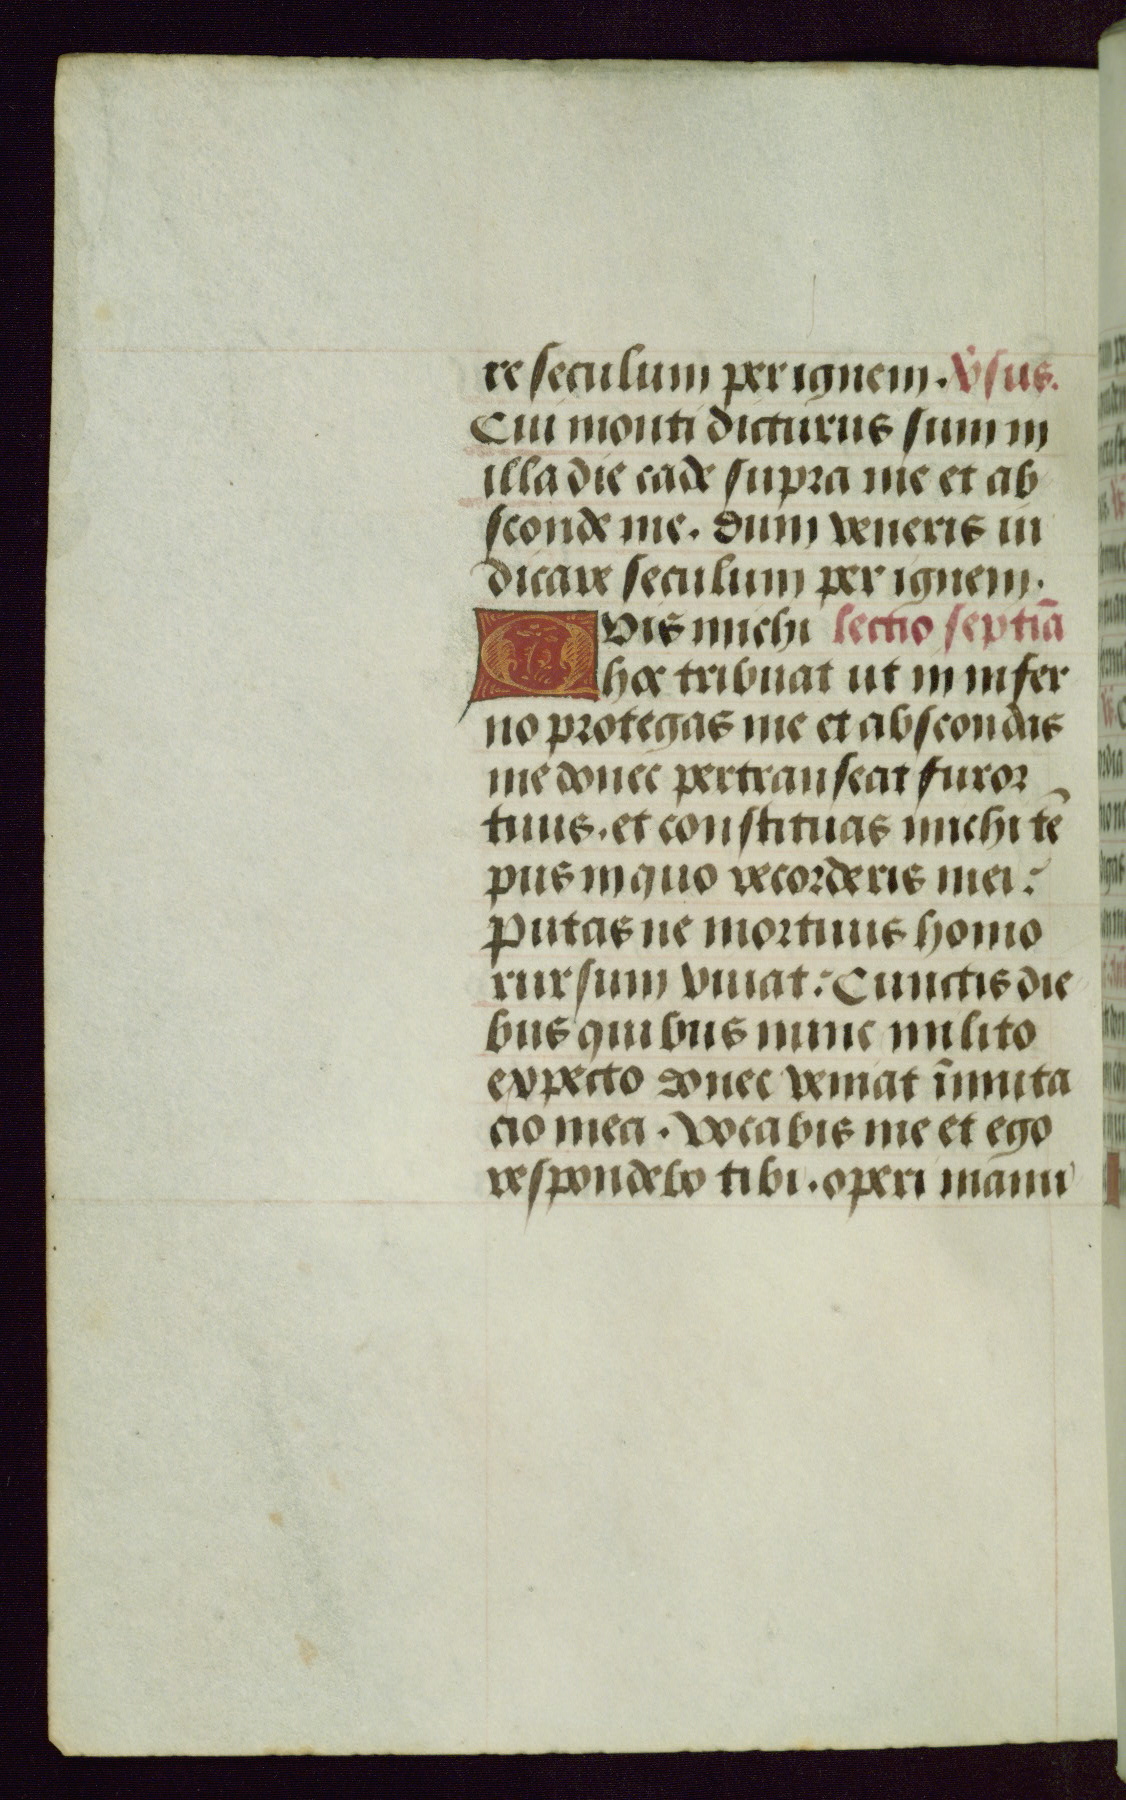 re seculum per ignem. v̾sus.
Cui monti dicturus sum in
illa die cade supra me et ab
sconde me. Dum veneris iu
dicare seculum per ignem.
Quis michi lectio septiā
hoc tribuat ut in infer
no protegas me et abscondas
me donec pertranseat furor
tuus. et constituas michi tē
pus in quo recorderis mei:
Putas ne mortuus homo
rursum vivat: Cunctis die
bus quibus nunc milito
expecto donec veniat īmuta
cio mea. Vocabis me et ego
respondebo tibi. operi manu